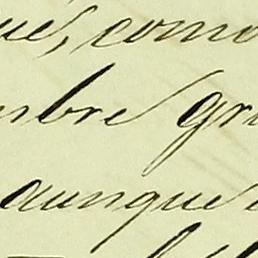 ué, como
mbre gr
aunque